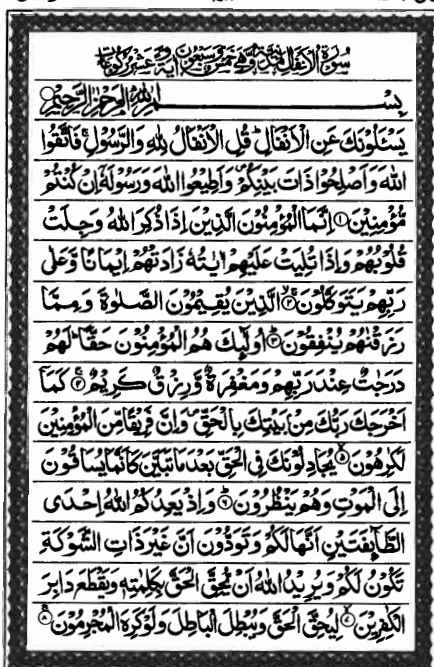 سُوۡرَةُ الۡاَنۡفَالِ مَدَنِيَّةٌ وَّهِيَ خَمۡسٌ وَّسَبۡعُوۡنَ اٰيَةً وَّعَشۡرُ رُكُوۡعَاتٍ
بِسۡمِ اللّٰهِ الرَّحۡمٰنِ الرَّحِيۡمِ
يَسۡـَٔلُوۡنَكَ عَنِ الۡاَنۡفَالِؕ قُلِ الۡاَنۡفَالُ لِلّٰهِ وَالرَّسُوۡلِۚ فَاتَّقُوا
اللّٰهَ وَاَصۡلِحُوۡا ذَاتَ بَيۡنِكُمۡ وَاَطِيۡعُوا اللّٰهَ وَرَسُوۡلَهٗۤ اِنۡ كُنۡتُمۡ
مُّؤۡمِنِيۡنَ ۝۱ اِنَّمَا الۡمُؤۡمِنُوۡنَ الَّذِيۡنَ اِذَا ذُكِرَ اللّٰهُ وَجِلَتۡ
قُلُوۡبُهُمۡ وَاِذَا تُلِيَتۡ عَلَيۡهِمۡ اٰيٰتُهٗ زَادَتۡهُمۡ اِيۡمَانًا وَّعَلٰى
رَبِّهِمۡ يَتَوَكَّلُوۡنَ ۝۲ الَّذِيۡنَ يُقِيۡمُوۡنَ الصَّلٰوةَ وَمِمَّا
رَزَقۡنٰهُمۡ يُنۡفِقُوۡنَ ۝۳ اُولٰٓئِكَ هُمُ الۡمُؤۡمِنُوۡنَ حَقًّاؕ لَهُمۡ
دَرَجٰتٌ عِنۡدَ رَبِّهِمۡ وَمَغۡفِرَةٌ وَّرِزۡقٌ كَرِيۡمٌ ۝۴ كَمَاۤ
اَخۡرَجَكَ رَبُّكَ مِنۡۢ بَيۡتِكَ بِالۡحَقِّ وَاِنَّ فَرِيۡقًا مِّنَ الۡمُؤۡمِنِيۡنَ
لَكٰرِهُوۡنَ ۝۵ يُجَادِلُوۡنَكَ فِى الۡحَقِّ بَعۡدَ مَا تَبَيَّنَ كَاَنَّمَا يُسَاقُوۡنَ
اِلَى الۡمَوۡتِ وَهُمۡ يَنۡظُرُوۡنَ ۝۶ وَاِذۡ يَعِدُكُمُ اللّٰهُ اِحۡدَى
الطَّآئِفَتَيۡنِ اَنَّهَا لَكُمۡ وَتَوَدُّوۡنَ اَنَّ غَيۡرَ ذَاتِ الشَّوۡكَةِ
تَكُوۡنُ لَكُمۡ وَيُرِيۡدُ اللّٰهُ اَنۡ يُّحِقَّ الۡحَقَّ بِكَلِمٰتِهٖ وَيَقۡطَعَ دَابِرَ
الۡكٰفِرِيۡنَ ۝۷ لِيُحِقَّ الۡحَقَّ وَيُبۡطِلَ الۡبَاطِلَ وَلَوۡ كَرِهَ الۡمُجۡرِمُوۡنَ ۝۸